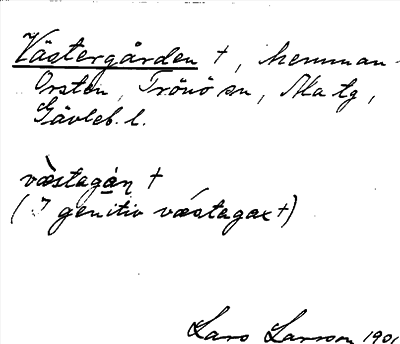 Västergården †, hemman
Orsten, Trönö sn, Ala tg,
Gävleb. l.
væ̀stagán̥ †
(i genitiv væ̀stagax †)
Lars Larsson 1901